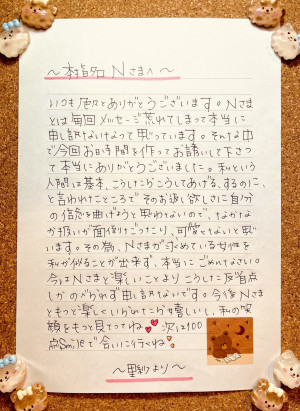 〜本指名 Nさまへ〜
いつも応えんありがとうございます。Nさま
とは毎回メッセージ荒れてしまって本当に
申し訳ないなって思っています。そんな中
で今回お時間を作ってお誘いして下さっ
て本当にありがとうございました。私という
人間は基本、こうしたからこうしてあげる、するのに、
と言われたところでそのお返し欲しさに自分
の信念を曲げようと思わないので、なかなか
扱いが面倒
可愛くないと思
います。その為、Nさまが求めている女性を
私が似ることが出来ず、本当にごめんなさい。
今はNさまと楽しいことよりこうした反省点
しかのべられず申し訳ないです。今後Nさま
ともっと楽しくいられたら嬉しいし、私の笑
顔をもっと見ててね 次は100
点Smileで会いに行くね
より〜